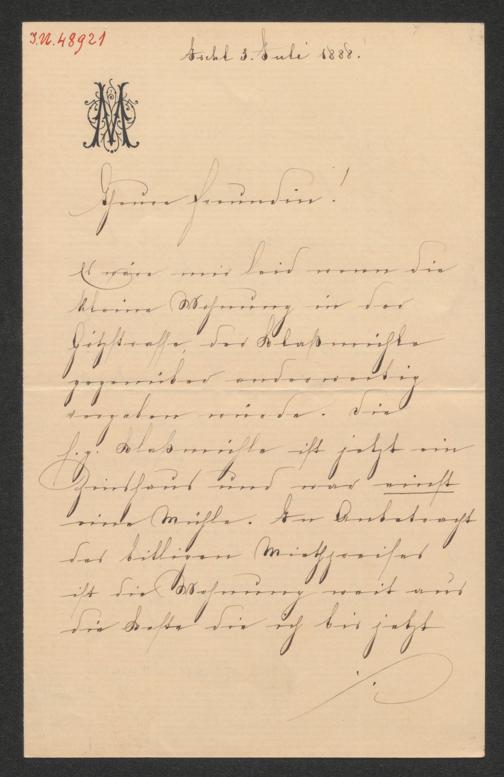 I.N. 48921
Ischl 3. Juli 1888.
M
Theure Freundin!
Es wäre mir leid wenn die
kleine Wohnung in der
Götzstrasse, der Klaßmühle
gegenüber anderweitig
vergeben würde. Die
s. g. Klaßmühle ist jetzt ein
Zinshaus und war einst
eine Mühle. In Anbetracht
des billigen Miethpreises
ist die Wohnung weit aus
die beste die ich bis jetzt